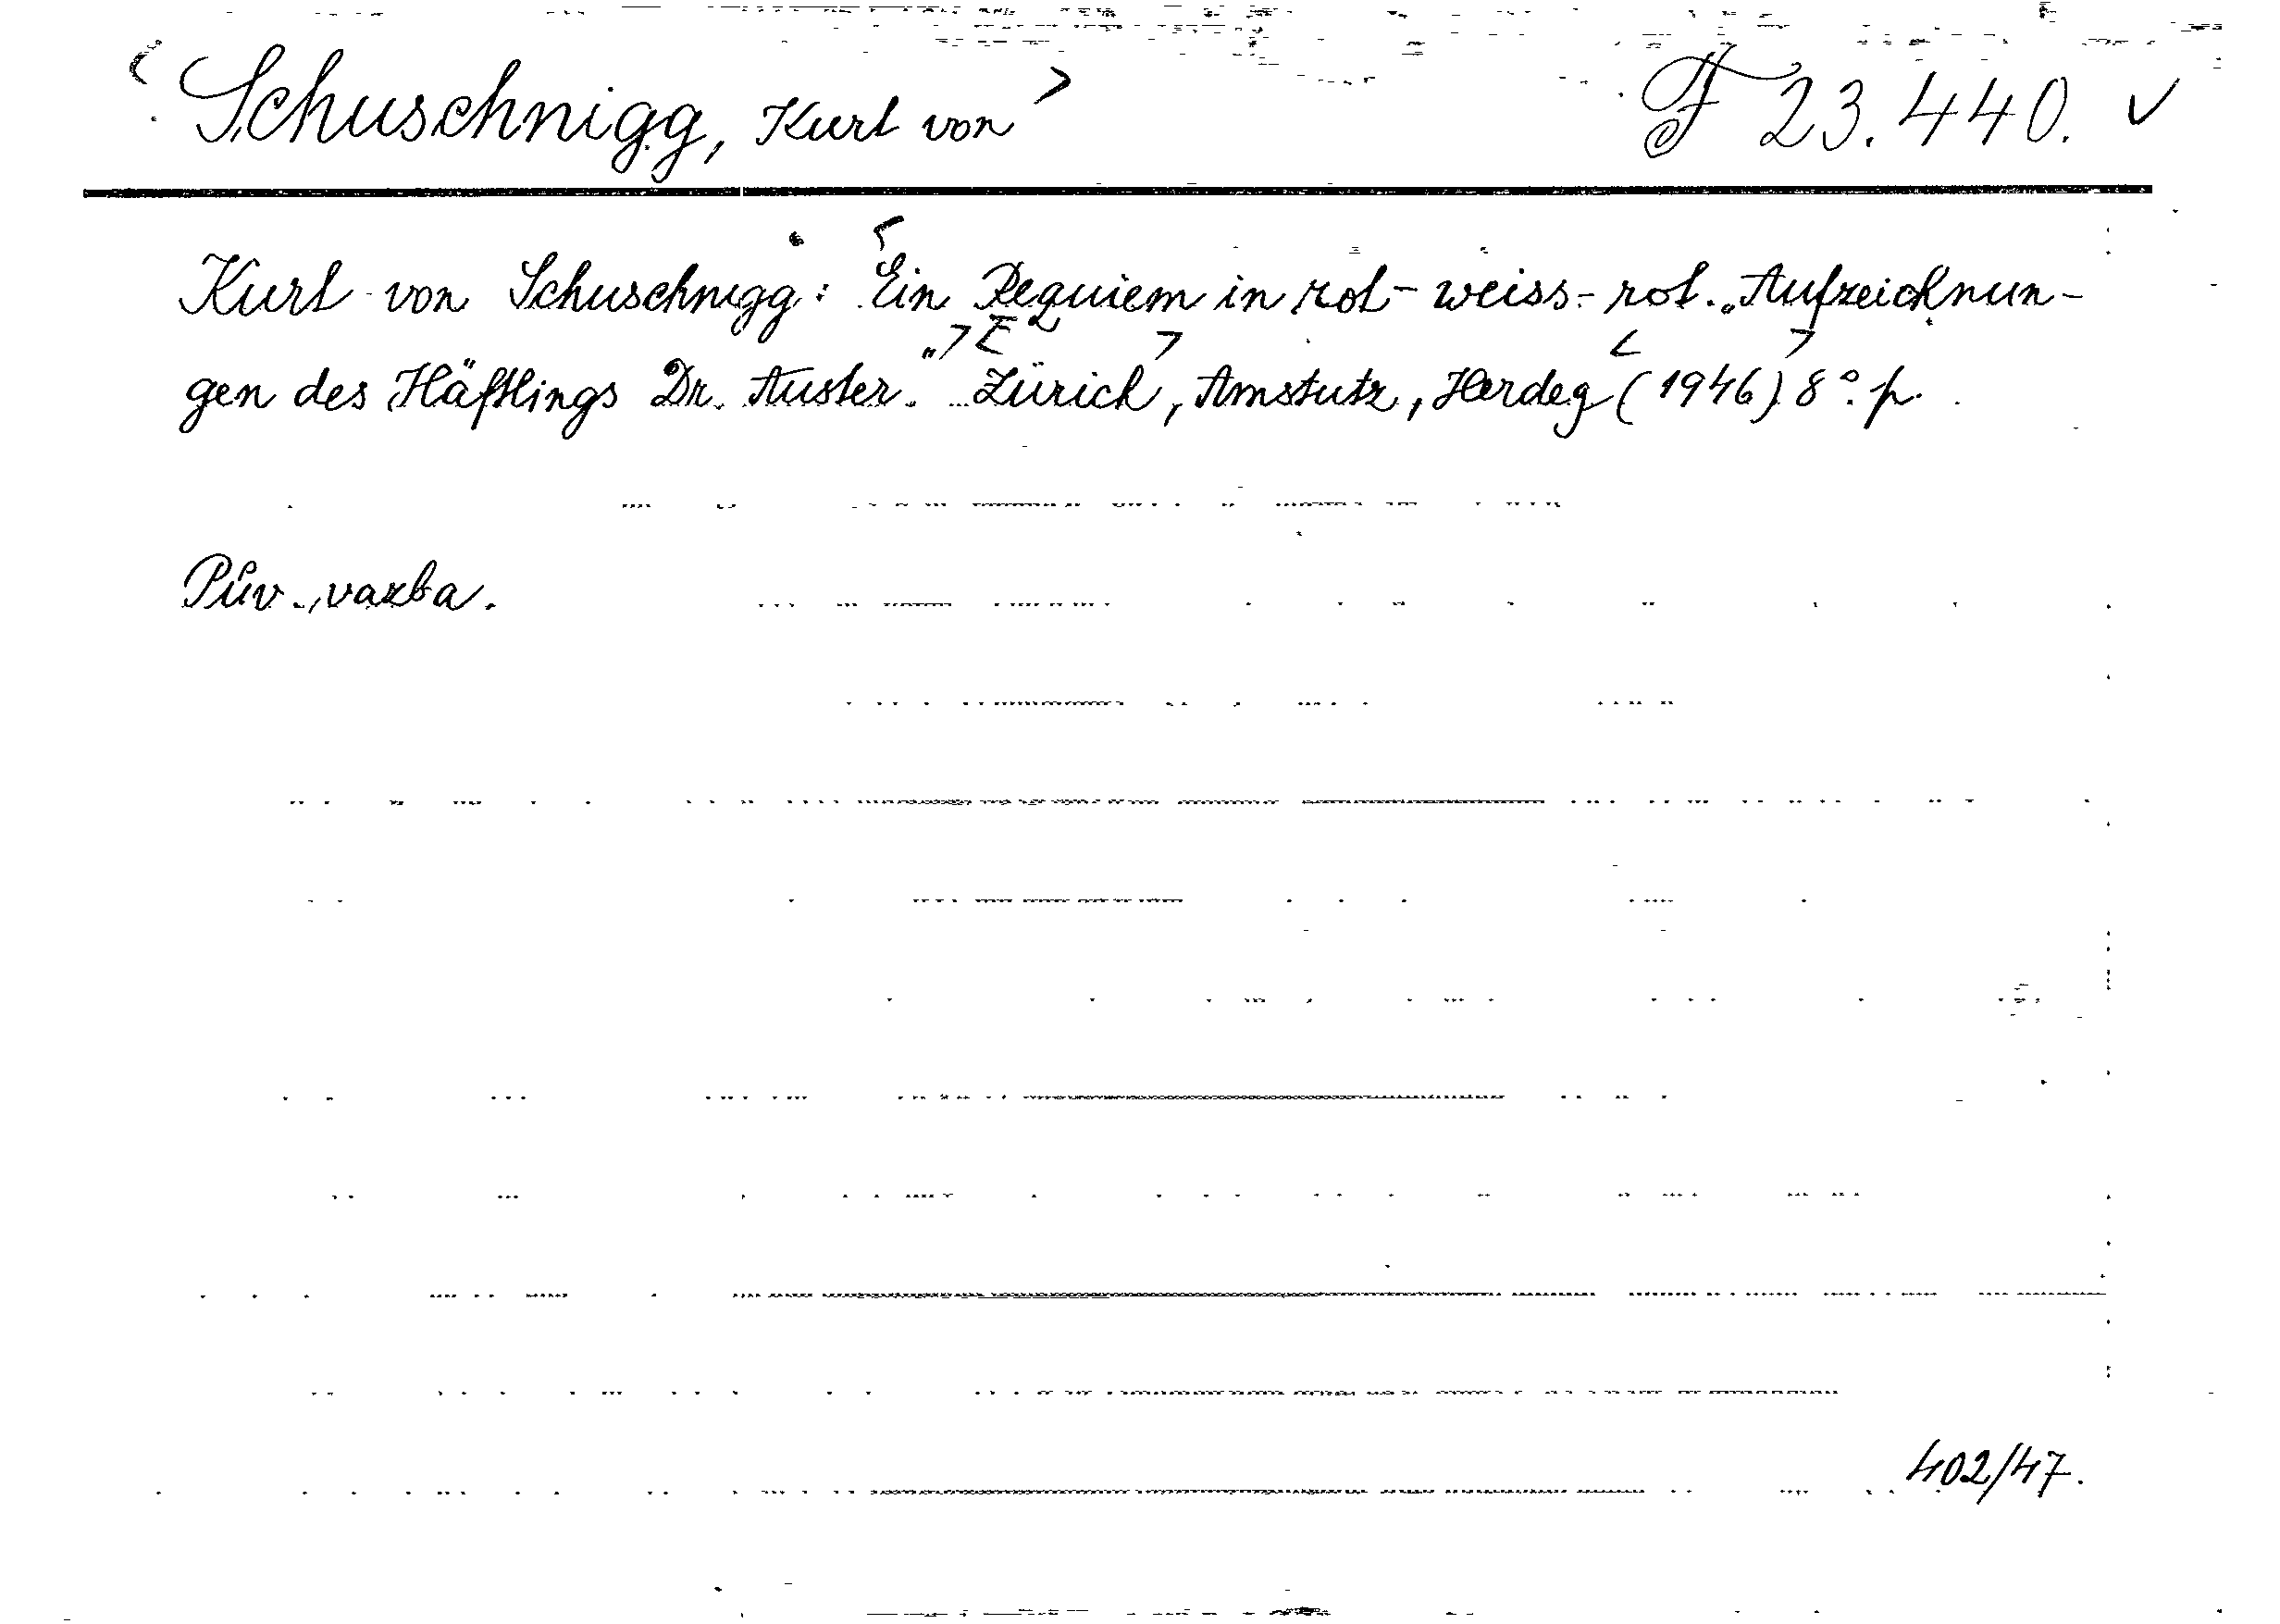 <Schuschnigg, Kurt von> F 23.440. ✓
Kurt von Schuschnigg: Ein Requiem in rot-weiss-rot. „Aufzeichnun-
gen des Häftlings Dr. Auster.“ Zürich, Amstutz, Herdeg (1946) 8°. p.
Pův. vazba.
402/47.